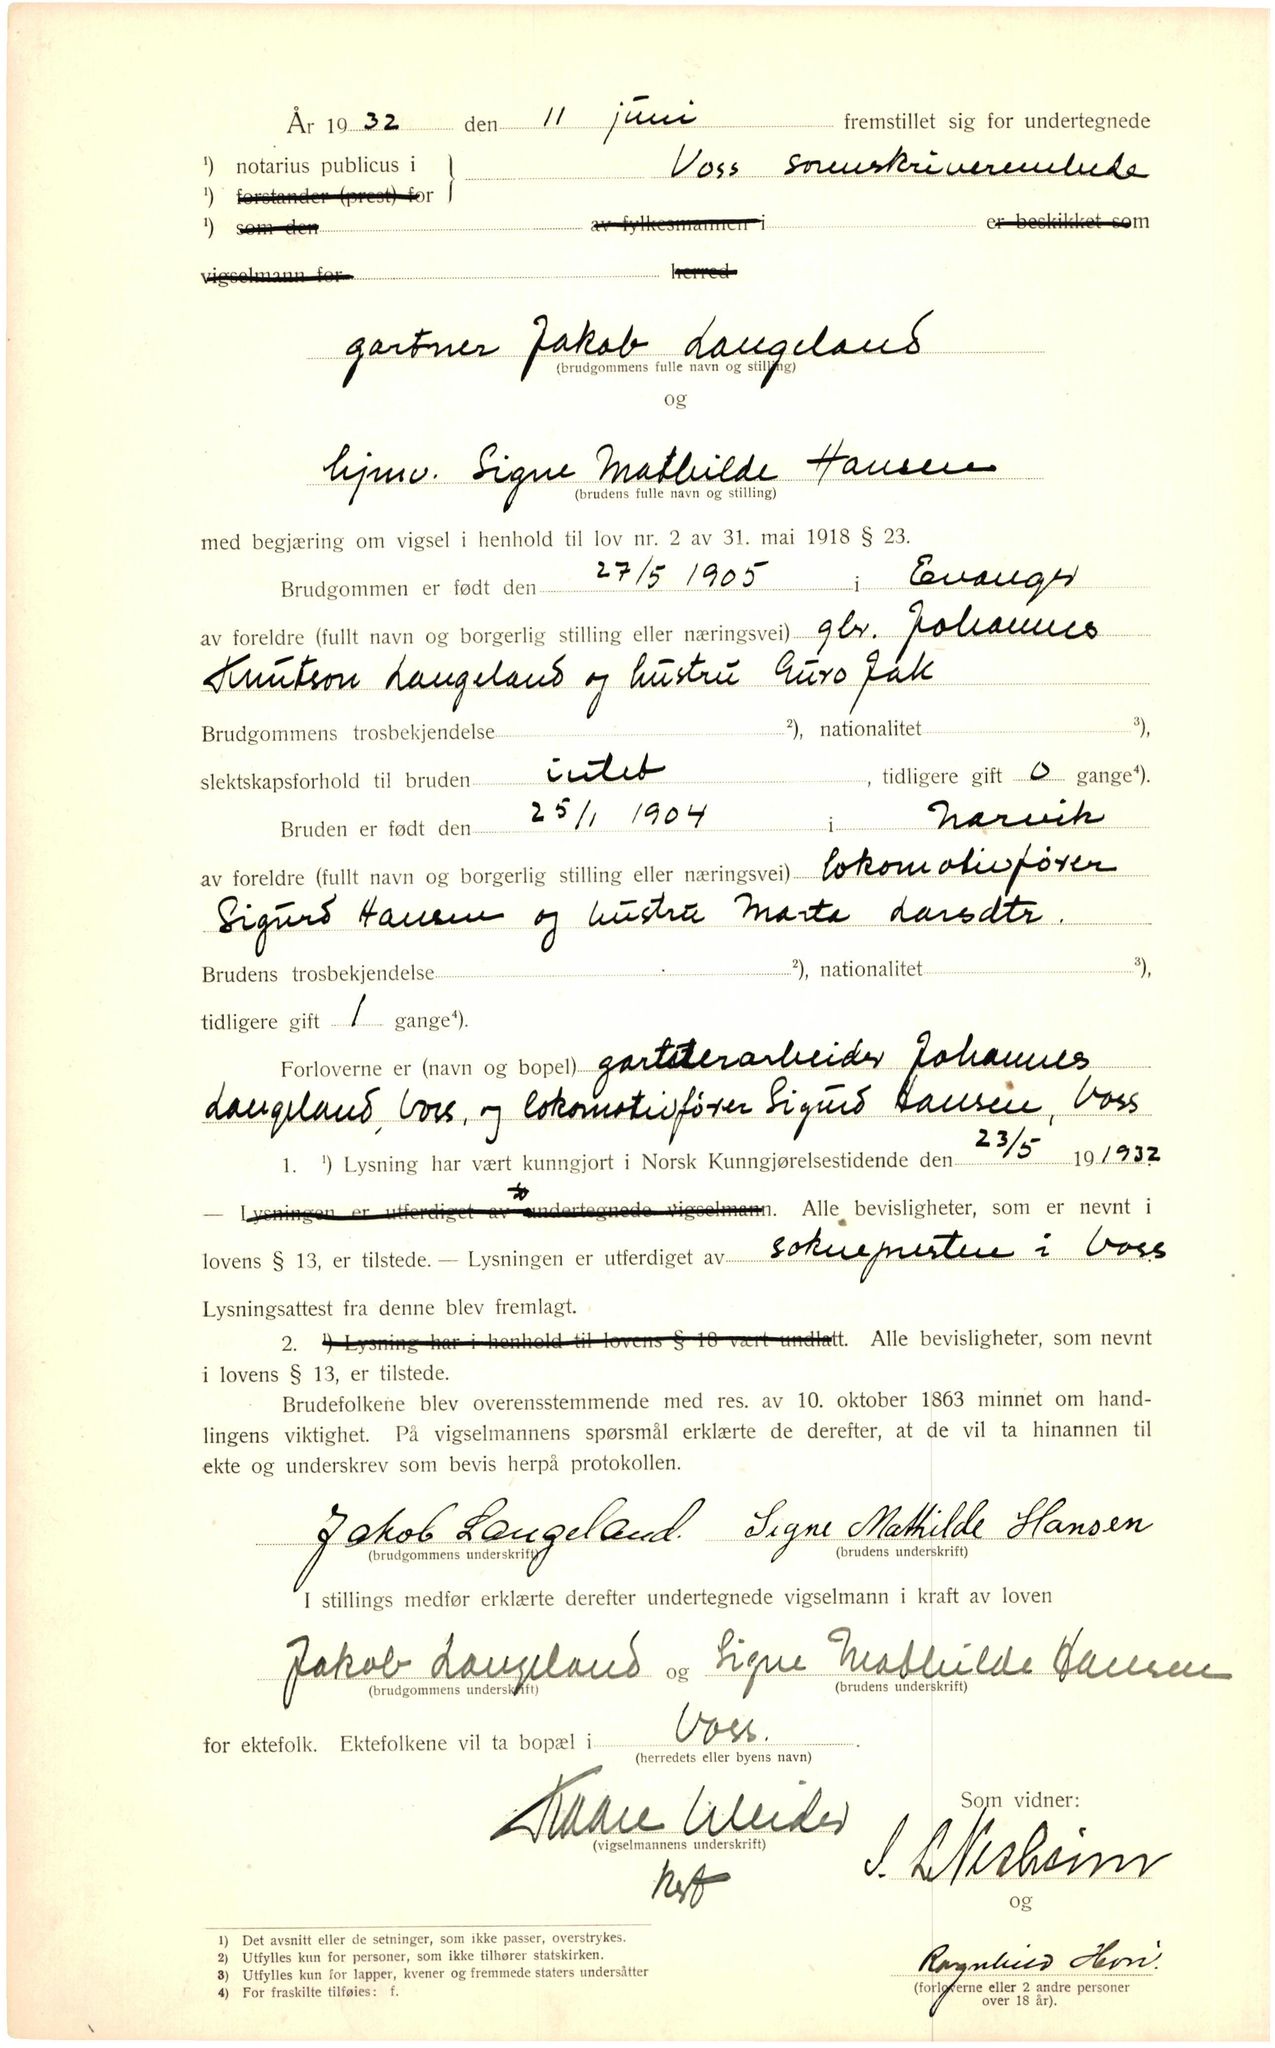 År 1932 den 11 juni fremstillet sig for undertegnede
¹) notarius publicus i Voss sorenskriverembede
¹) forstander (prest) for
¹) som den av fylkesmannen i er beskikket som
vigselmann for herred
gartner Jakob Langeland
(brudgommens fulle navn og stilling)
og
hjmv. Signe Mathilde Hansen
(brudens fulle navn og stilling)
med begjæring om vigsel i henhold til lov nr. 2 av 31. mai 1918 § 23.
Brudgommen er født den 27/5 1905 i Evanger
av foreldre (fullt navn og borgerlig stilling eller næringsvei) gbr. Johannes
Knutson Langeland og hustru Guro Jak
Brudgommens trosbekjendelse ²), nationalitet ³),
slektskapsforhold til bruden intet, tidligere gift 0 gange⁴).
Bruden er født den 25/1 1904 i Narvik
av foreldre (fullt navn og borgerlig stilling eller næringsvei) lokomotivfører
Sigurd Hansen og hustru Marta Larsdtr.
Brudens trosbekjendelse ²), nationalitet ³),
tidligere gift 1 gange⁴).
Forloverne er (navn og bopel) Johannes
Langeland, Voss, og lokomotivfører Sigurd Hansen, Voss
1. ¹) Lysning har vært kunngjort i Norsk Kunngjørelsestidende den 23/5 19 1932
— Lysningen er utferdiget av undertegnede vigselmann. Alle bevisligheter, som er nevnt i
lovens § 13, er tilstede. — Lysningen er utferdiget av soknepresten i Voss
Lysningsattest fra denne blev fremlagt.
2. ¹) Lysning har i henhold til lovens § 18 vært undlatt. Alle bevisligheter, som nevnt
i lovens § 13, er tilstede.
Brudefolkene blev overensstemmende med res. av 10. oktober 1863 minnet om hand-
lingens viktighet. På vigselmannens spørsmål erklærte de derefter, at de vil ta hinannen til
ekte og underskrev som bevis herpå protokollen.
Jakob Langeland. Signe Mathilde Hansen
(brudgommens underskrift) (brudens underskrift)
I stillings medfør erklærte derefter undertegnede vigselmann i kraft av loven
Jakob Langeland og Signe Mathilde Hansen
(brudgommens underskrift) (brudens underskrift)
for ektefolk. Ektefolkene vil ta bopæl i Voss.
(herredets eller byens navn)
Som vidner:
Kaare
(vigselmannens underskrift)
og
1) Det avsnitt eller de setninger, som ikke passer, overstrykes.
2) Utfylles kun for personer, som ikke tilhører statskirken.
3) Utfylles kun for lapper, kvener og fremmede staters undersåtter
4) For fraskilte tilføies: f.
Ragnhild
(forloverne eller 2 andre personer
over 18 år).